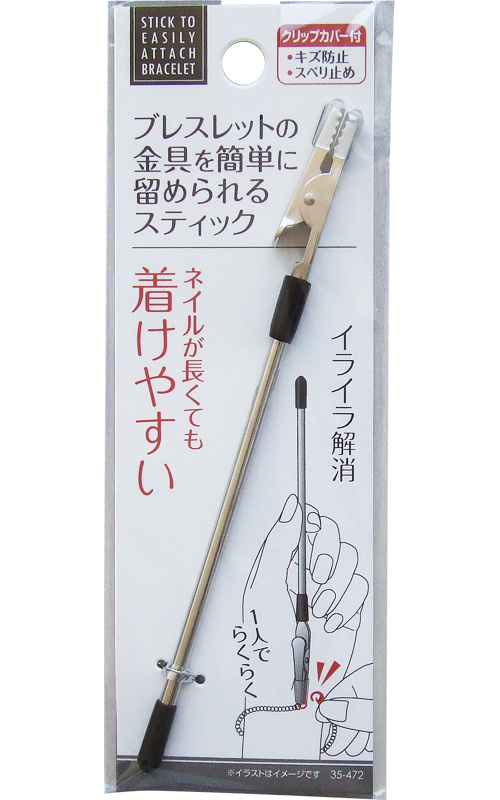 STICK TO
EASILY
ATTACH
BRACELET
クリップカバー付
・キズ防止
・スベリ止め
ブレスレットの
金具を簡単に
留められる
スティック
ネイルが長くても
着けやすい
イライラ解消
1人で
らくらく
※イラストはイメージです 35-472